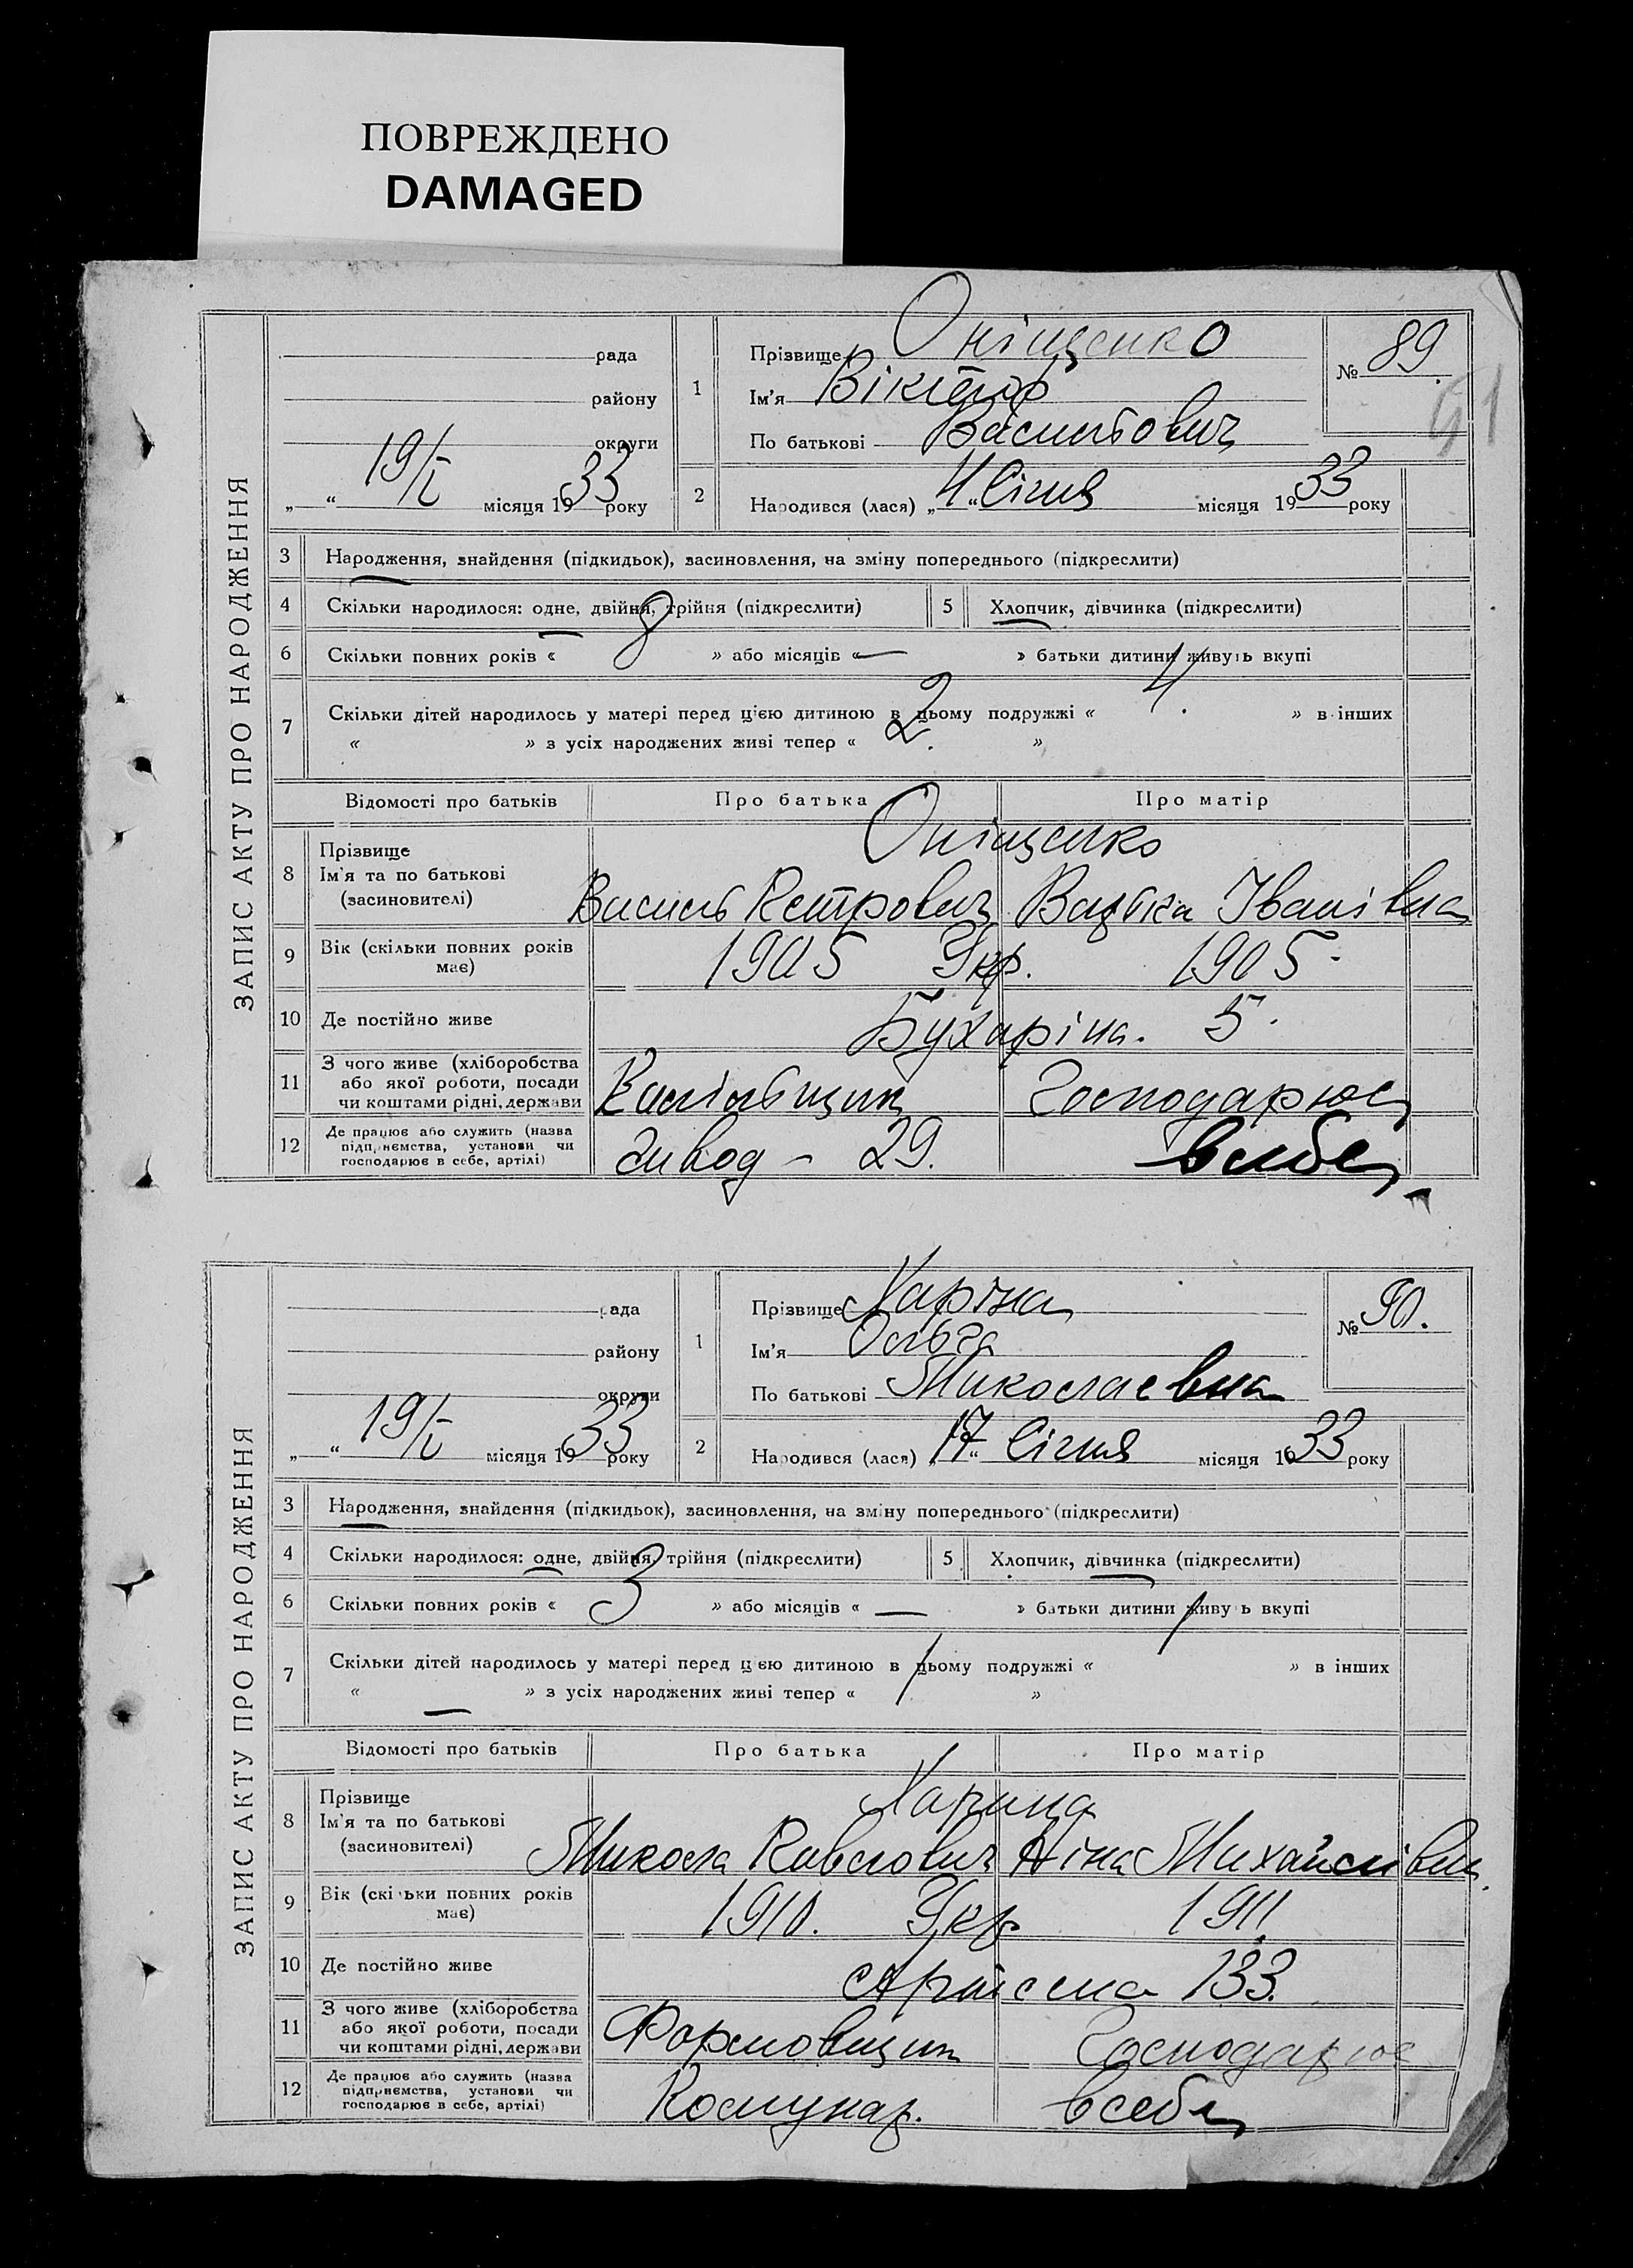 ПОВРЕЖДЕНО
DAMAGED
91
ЗАПИС АКТУ ПРО НАРОДЖЕННЯ
рада
району
округи
„ “ 19/I місяця 1933 року
1
Прізвище Оніщенко
Ім'я Віктор
По батькові Васильович
№ 89.
2
Народився (лася) „4“ Січня місяця 1933 року
3 Народження, знайдення (підкидьок), засиновлення, на зміну попереднього (підкреслити)
4 Скільки народилося: одне, двійня, трійня (підкреслити)
5 Хлопчик, дівчинка (підкреслити)
6 Скільки повних років « 8 » або місяців « — » батьки дитини живуть вкупі
7 Скільки дітей народилось у матері перед цією дитиною в цьому подружжі « 4. » в інших
« » з усіх народжених живі тепер « 2. »
Відомості про батьків Про батька Про матір
8 Прізвище
Ім'я та по батькові
(засиновителі)
Оніщенко
Василь Петрович Іванівна
9 Вік (скільки повних років
має)
1905 Укр. 1905
10 Де постійно живе Бухаріна. 5
11 З чого живе (хліборобства
або якої роботи, посади
чи коштами рідні, держави
Господарює
12 Де працює або служить (назва
підприємства, установи чи
господарює в себе, артілі)
Завод – 29. в себе
ЗАПИС АКТУ ПРО НАРОДЖЕННЯ
рада
району
округи
„ “ 19/I місяця 1933 року
1
Прізвище Харіна
Ім'я Ольга
По батькові Миколаевна
№ 90.
2
Народився (лася) „17“ Січня місяця 1933 року
3 Народження, знайдення (підкидьок), засиновлення, на зміну попереднього (підкреслити)
4 Скільки народилося: одне, двійня, трійня (підкреслити)
5 Хлопчик, дівчинка (підкреслити)
6 Скільки повних років « 3 » або місяців « — » батьки дитини живуть вкупі
7 Скільки дітей народилось у матері перед цією дитиною в цьому подружжі « 1 » в інших
« — » з усіх народжених живі тепер « 1 »
Відомості про батьків Про батька Про матір
8 Прізвище
Ім'я та по батькові
(засиновителі)
Микола Павлович Ніна Михайлівна
9 Вік (скільки повних років
має)
1910. Укр. 1911.
10 Де постійно живе Артема 133.
11 З чого живе (хліборобства
або якої роботи, посади
чи коштами рідні, держави
Формовщик Господарює
12 Де працює або служить (назва
підприємства, установи чи
господарює в себе, артілі)
Комунар. в себе